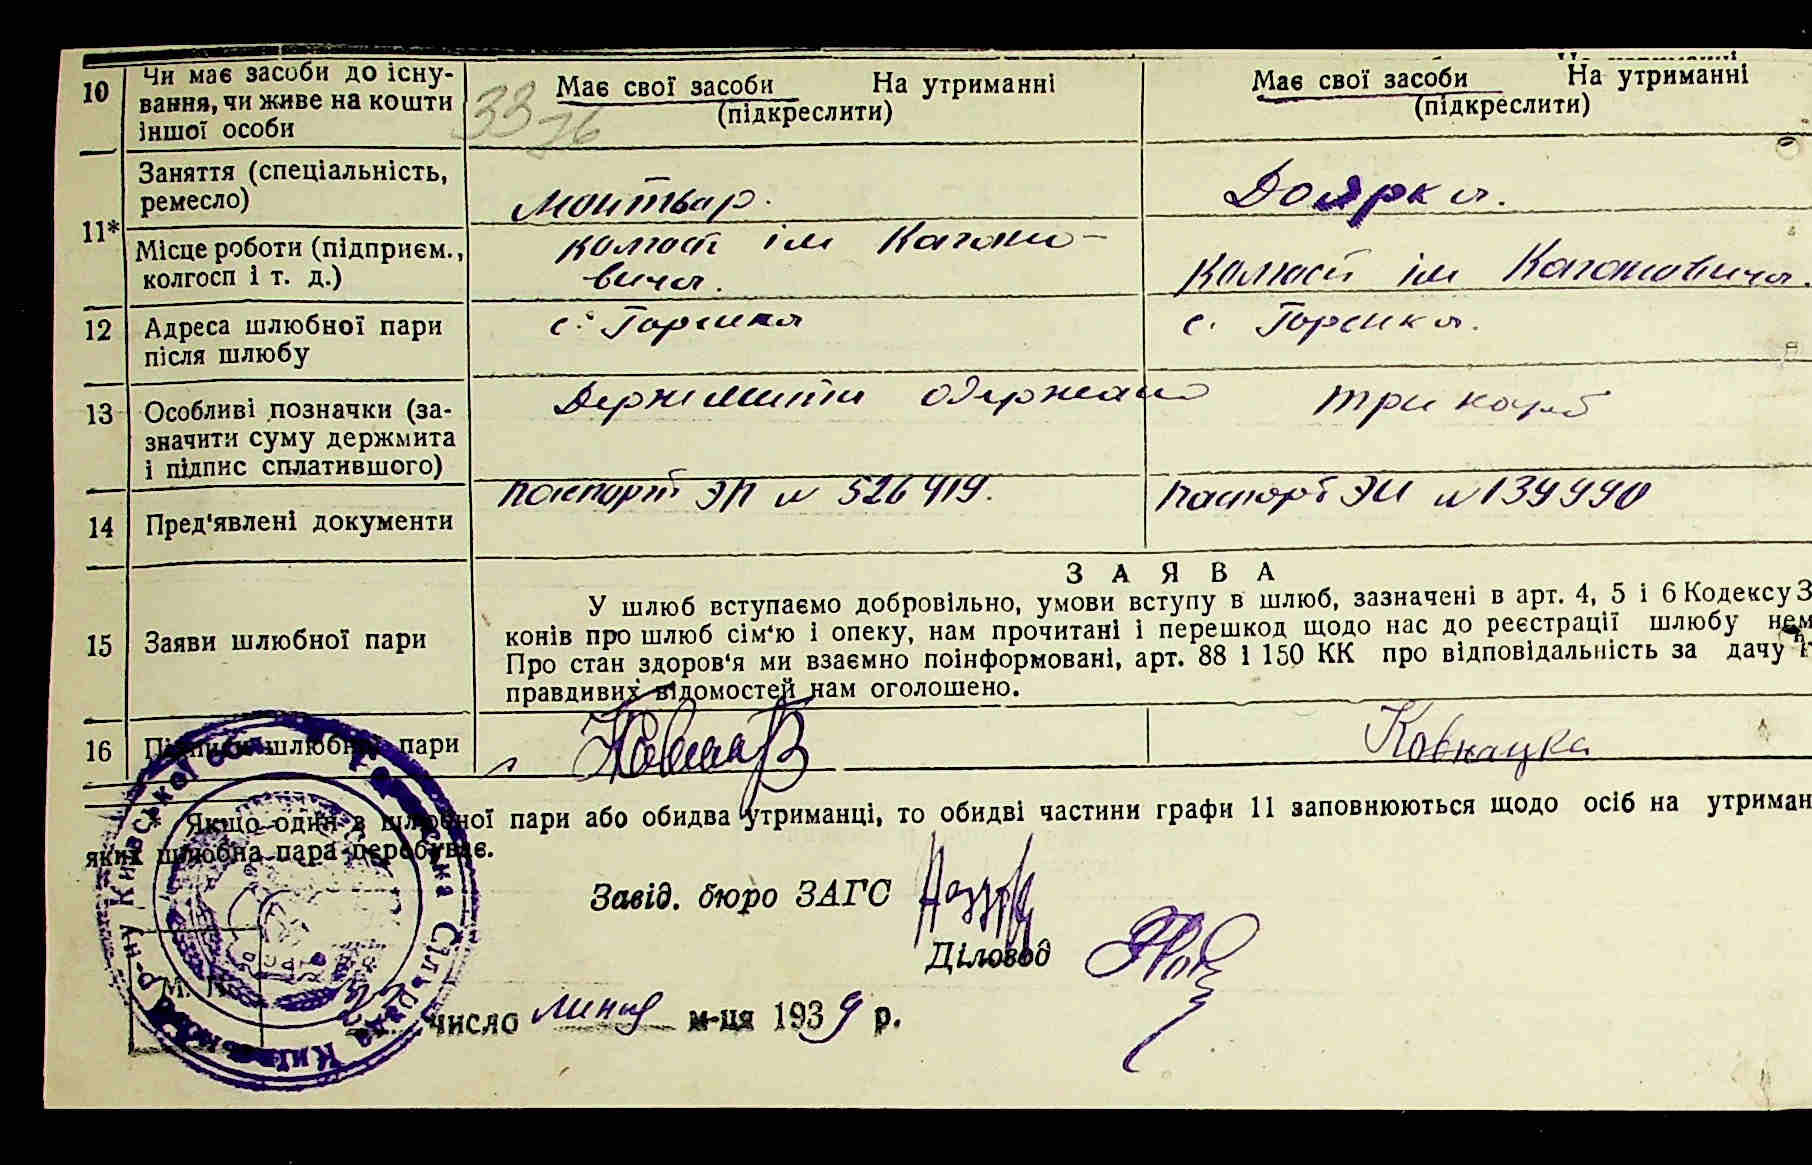 10 Чи має засоби до існу-
вання, чи живе на кошти
іншої особи
33
26
Має свої засоби На утриманні
(підкреслити)
Має свої засоби На утриманні
(підкреслити)
11*
Заняття (спеціальність,
ремесло)
Доярка.
Місце роботи (підприєм.,
колгосп і т. д.)
колгосп ім Кагано-
вича.
колгосп ім Кагановича.
12 Адреса шлюбної пари
після шлюбу
с. Горенка
с. Горенка.
13 Особливі позначки (за-
значити суму держмита
і підпис сплатившого)
Держмита одержано три карб
14 Пред'явлені документи
паспорт ЭП № 526419.
паспорт ЭИ № 139990
15 Заяви шлюбної пари
ЗАЯВА
У шлюб вступаємо добровільно, умови вступу в шлюб, зазначені в арт. 4, 5 і 6 Кодексу З
конів про шлюб сім'ю і опеку, нам прочитані і перешкод щодо нас до реєстрації шлюбу нем
Про стан здоров'я ми взаємно поінформовані, арт. 88 і 150 КК про відповідальність за дачу
правдивих відомостей нам оголошено.
16 Підписи шлюбної пари
Ковнацка
* Якщо один з шлюбної пари або обидва утриманці, то обидві частини графи 11 заповнюються щодо осіб на утриман
яких шлюбна пара перебуває.
Завід. бюро ЗАГС
Діловод
М. П.
число липня м-ця 1939 р.
Сільрада Київського р-ну Київської обл.